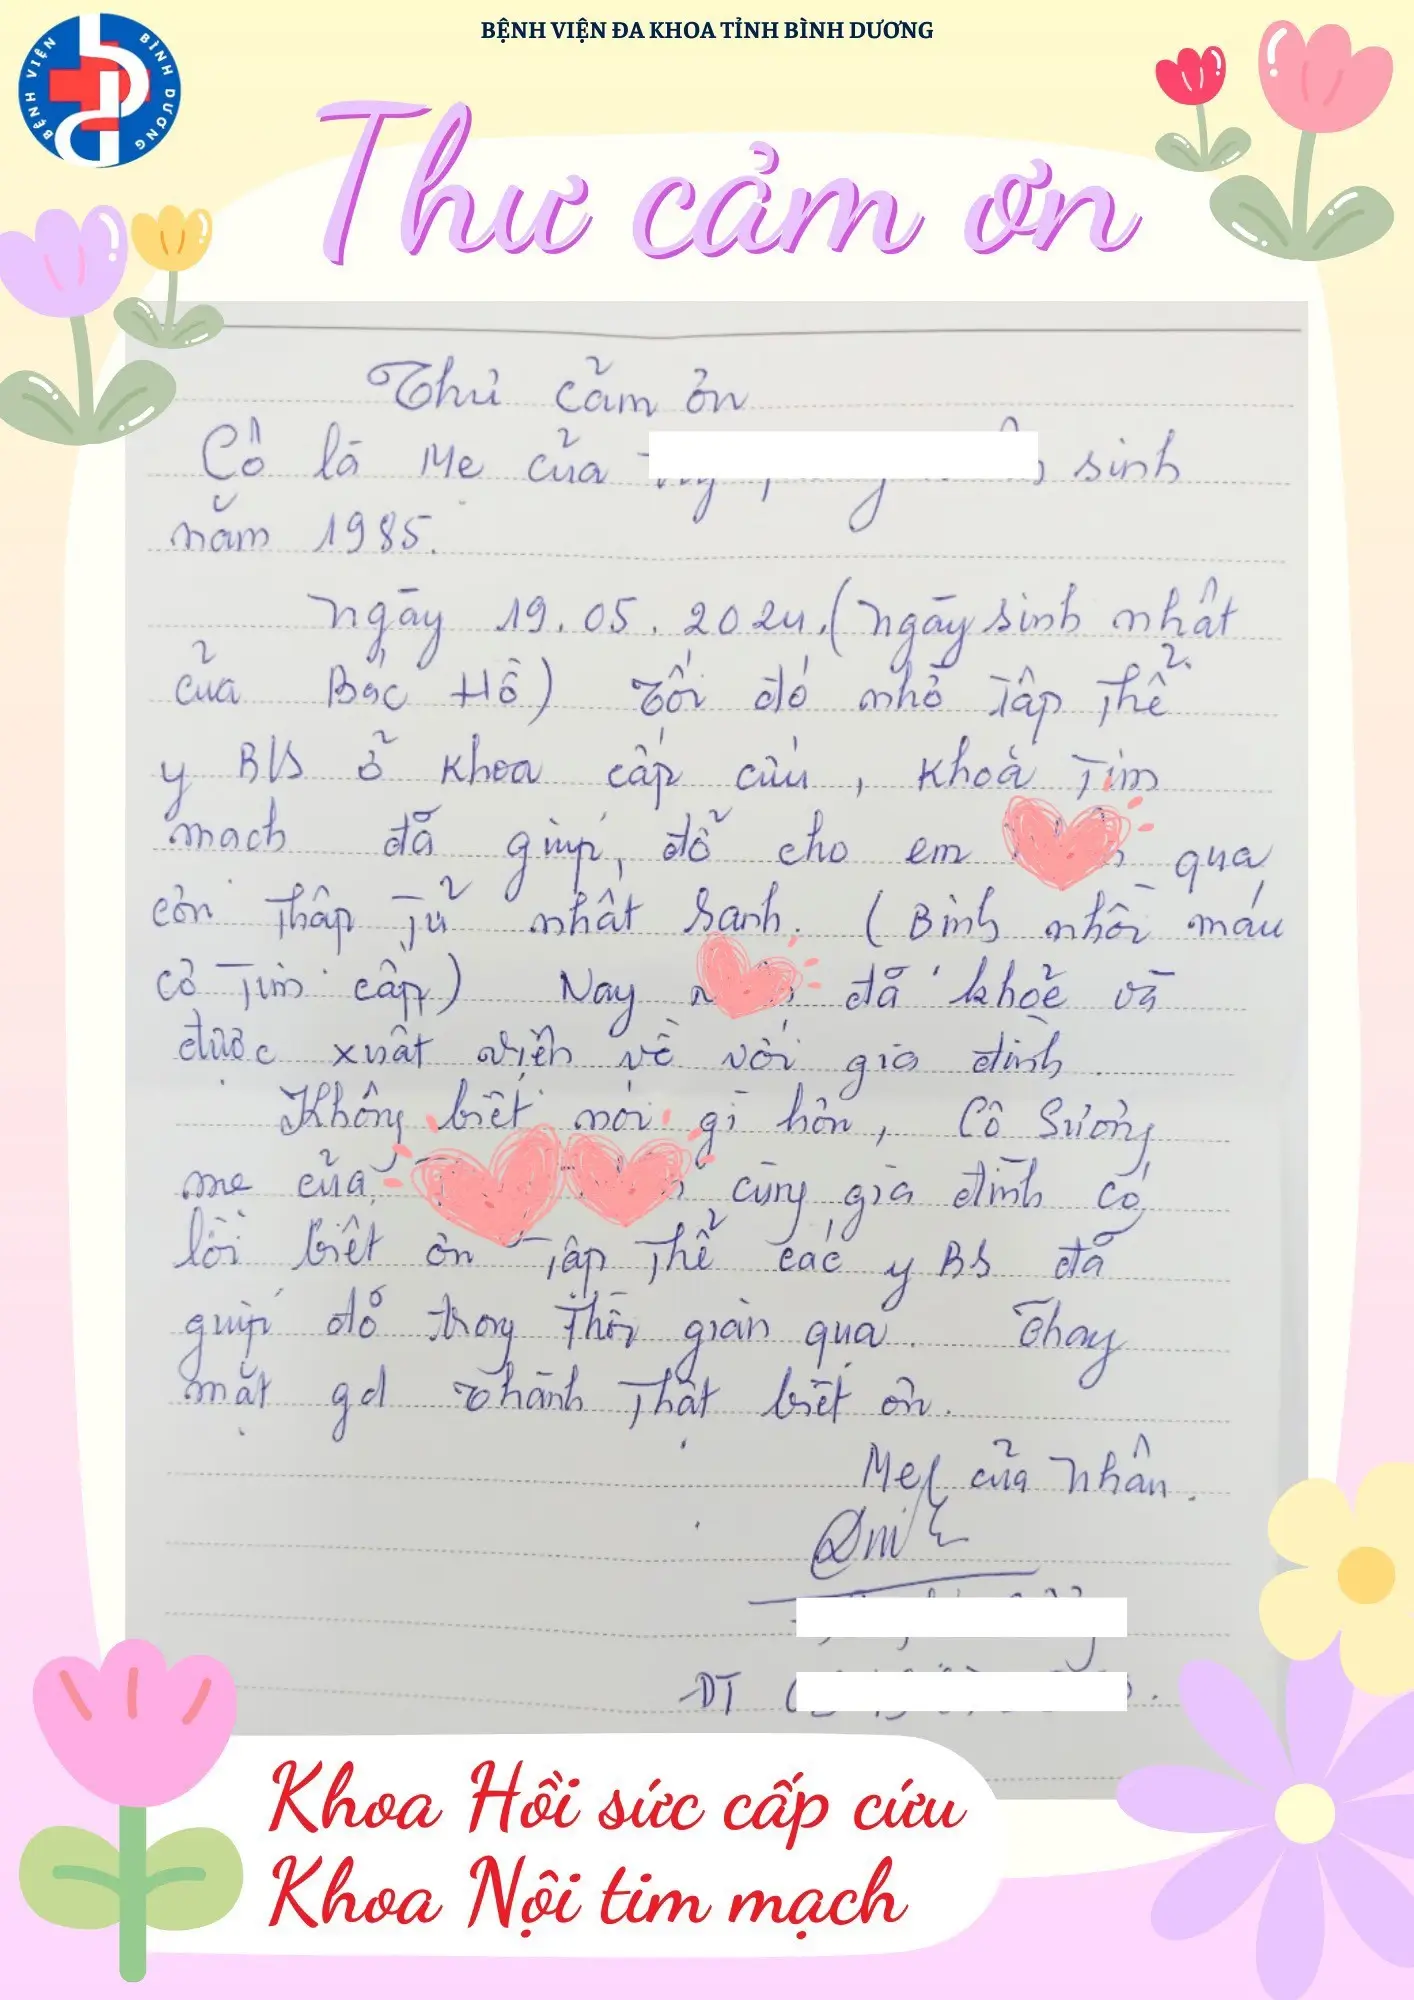 BỆNH VIỆN ĐA KHOA TỈNH BÌNH DƯƠNG
BỆNH VIỆN BÌNH DƯƠNG
Thư cảm ơn
Thư cảm ơn
Cô là Mẹ của sinh
năm 1985.
Ngày 19.05.2024. (Ngày sinh nhật
của Bác Hồ) Tối đó nhờ Tập Thể
y BS ở khoa cấp cứu, khoa Tim
mạch đã giúp đỡ cho em qua
cơn Thập Tử nhất Sanh. (Bình nhồi máu
cơ Tim cấp) Nay đã khỏe và
được xuất viện về với gia đình.
Không biết nói gì hơn, Cô Sương
mẹ của cùng gia đình có
lời biết ơn Tập Thể các y BS đã
giúp đỡ trong Thời gian qua. Thay
mặt gđ Thành Thật biết ơn.
Mẹ của Nhân.
ĐT
Khoa Hồi sức cấp cứu
Khoa Nội tim mạch